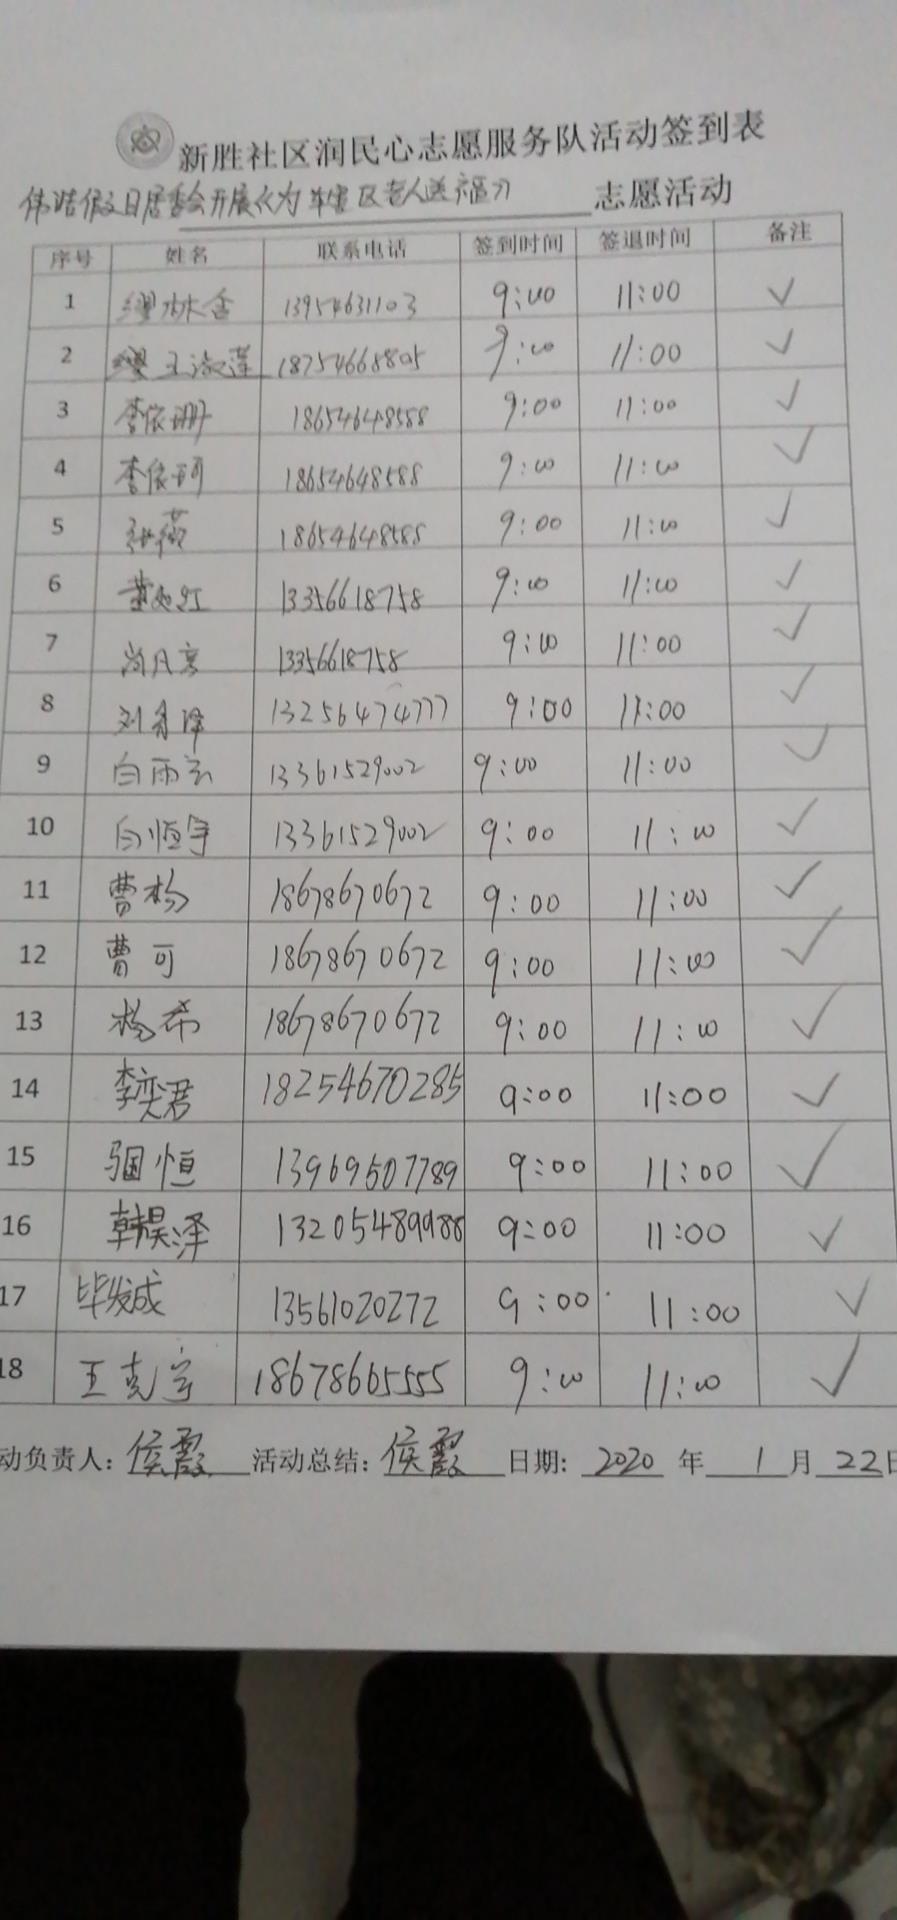 新胜社区润民心志愿服务队活动签到表
伟浩假日居委会开展《为辖区老人送福》 志愿活动
序号 姓名 联系电话 签到时间 签退时间 备注
1 林 13954631103 9:00 11:00 ✓
2 王淑莲 18754668805 9:00 11:00 ✓
3 李依珊 18654648588 9:00 11:00 ✓
4 李依珂 18654648588 9:00 11:00 ✓
5 张薇 18654648588 9:00 11:00 ✓
6 13356618758 9:00 11:00 ✓
7 13356618758 9:00 11:00 ✓
8 刘泽 13256474777 9:00 11:00 ✓
9 白雨 13361529002 9:00 11:00 ✓
10 白恒宇 13361529002 9:00 11:00 ✓
11 曹杨 18678670672 9:00 11:00 ✓
12 曹可 18678670672 9:00 11:00 ✓
13 杨希 18678670672 9:00 11:00 ✓
14 李奕君 18254670285 9:00 11:00 ✓
15 恒 13969507789 9:00 11:00 ✓
16 韩昊泽 13205489988 9:00 11:00 ✓
17 毕发成 13561020272 9:00 11:00 ✓
18 王克宇 18678665555 9:00 11:00 ✓
动负责人: 侯霞 活动总结: 侯霞 日期: 2020 年 1 月 22 日